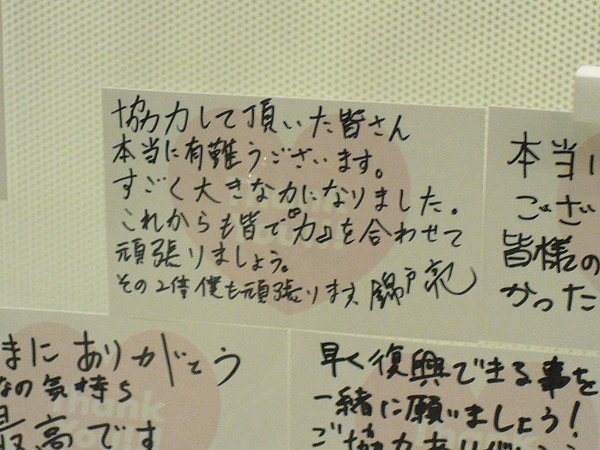 協力して頂いた皆さん
本当に有難うございます。
すごく大きな力になりました。
これからも皆で『力』を合わせて
頑張りましょう。
その2倍僕も頑張ります 錦戸亮
本当に
ござい
皆様の
かった
まにありがとう
なの気持ち
最高です
早く復興できる事を
一緒に願いましょう!
ご協力ありがとう
Thank